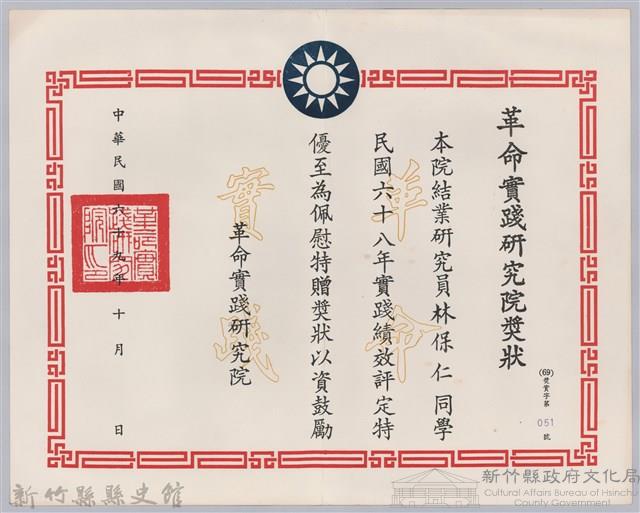 革命實踐研究院獎狀
(69)實字第 051 號
本院結業研究員林保仁同學
民國六十八年實踐績效評定特
優至為佩慰特贈獎狀以資鼓勵
革命
實踐
革命實踐研究院
中華民國六十九年十月 日
新竹縣縣史館
新竹縣政府文化局
Cultural Affairs Bureau of Hsinchu
County Government